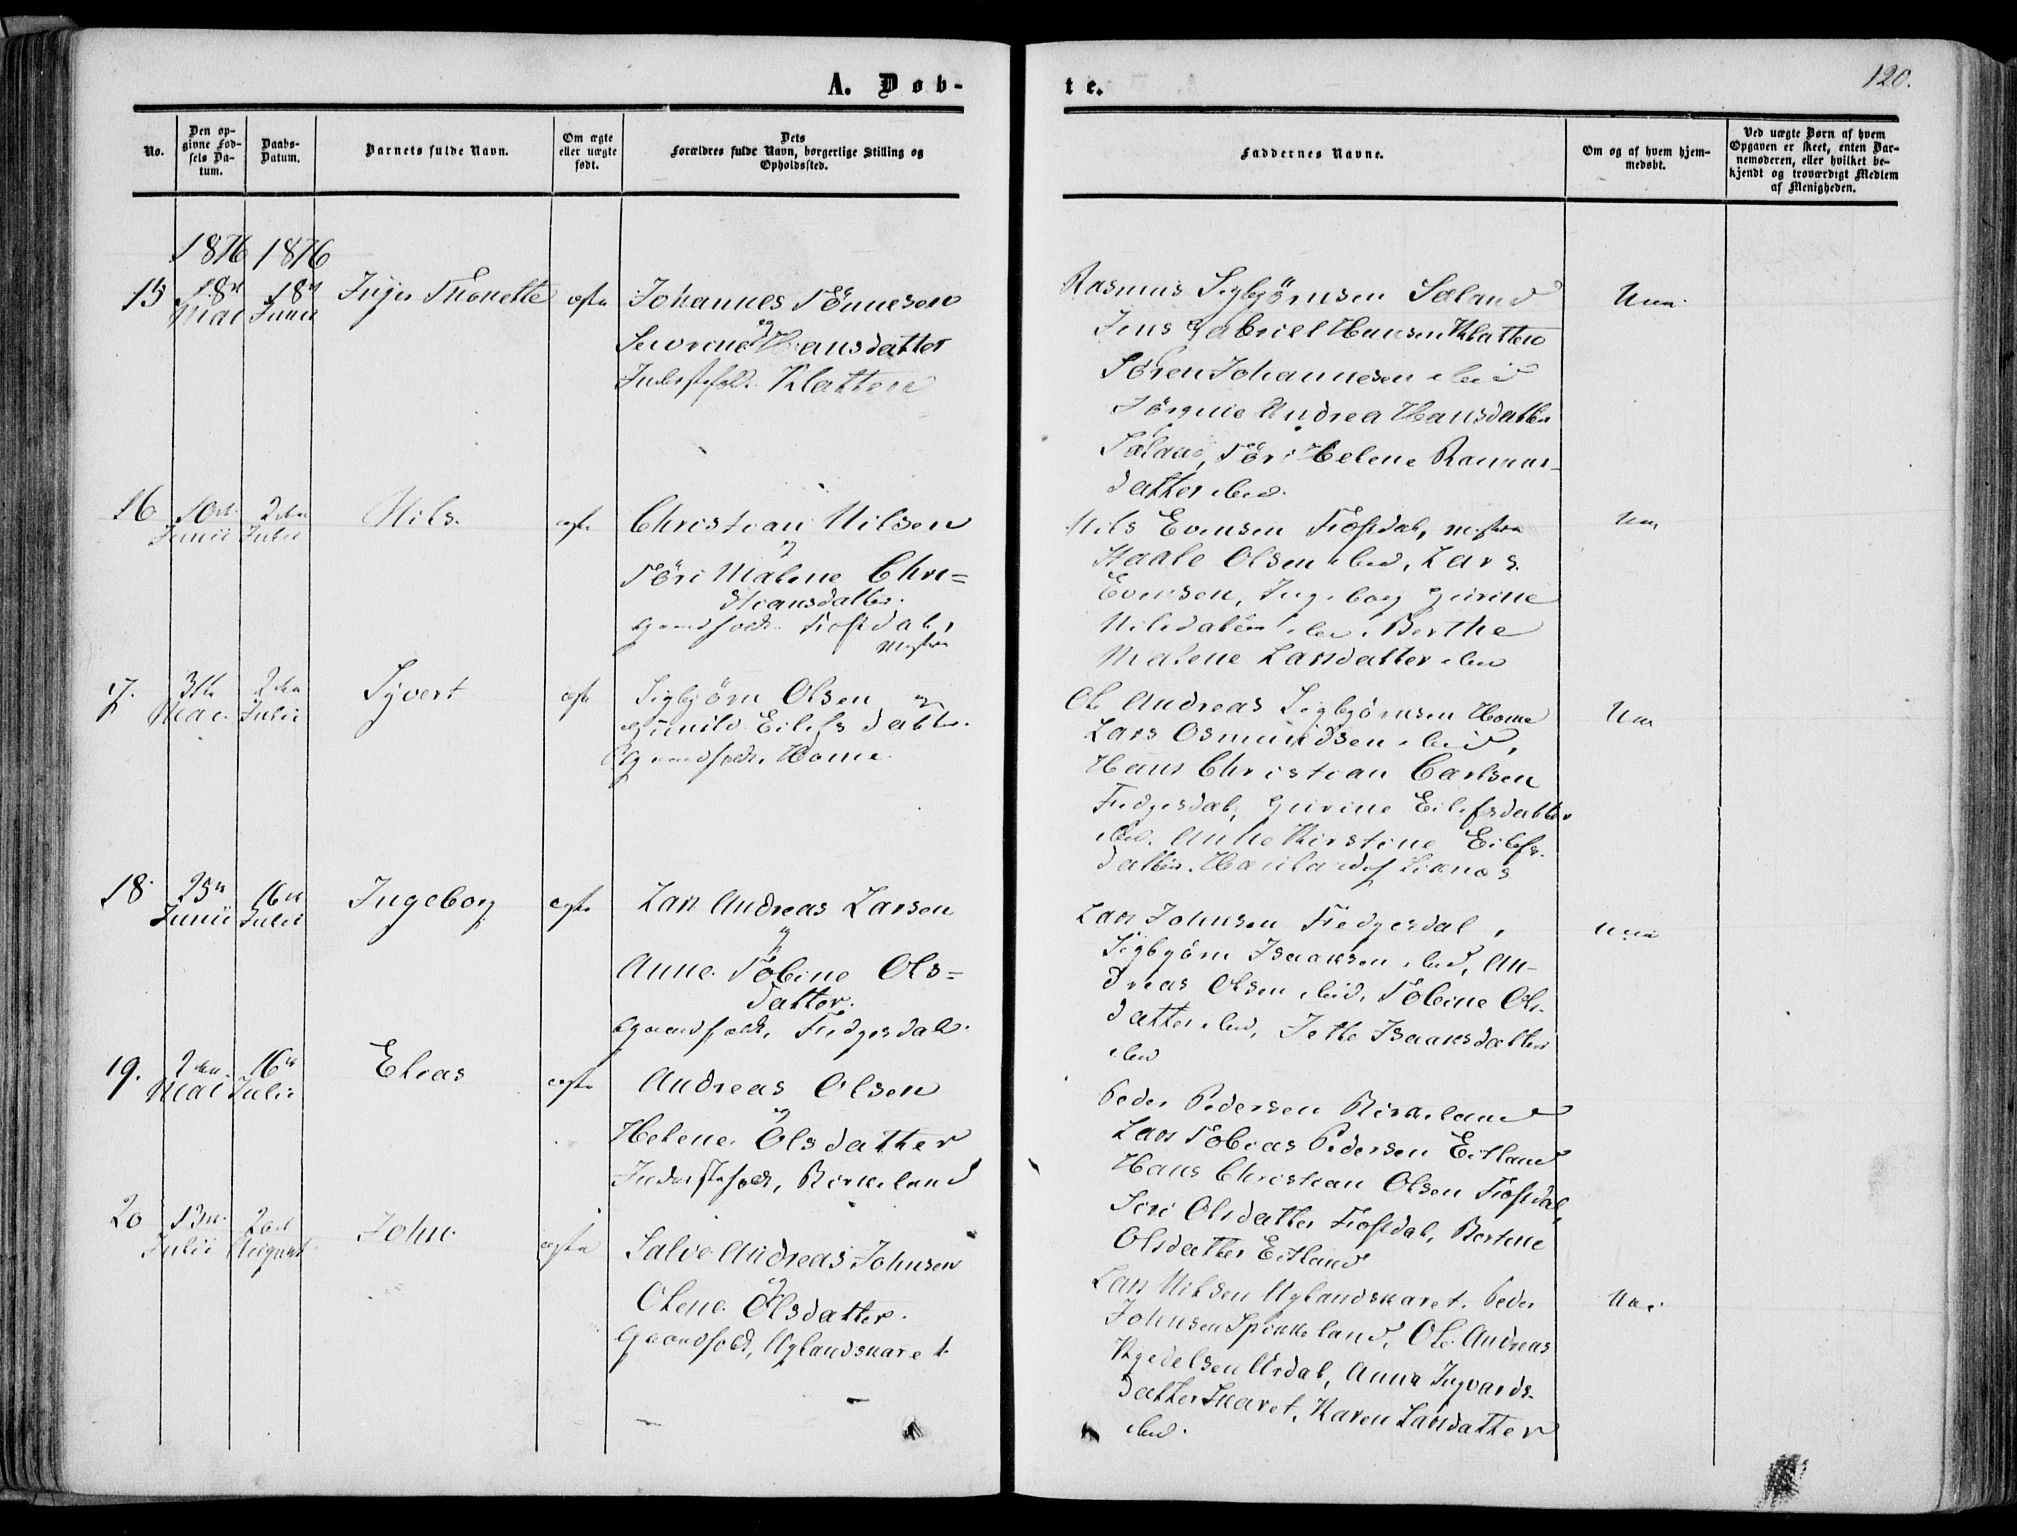 A. Døb-
te.
120.
No.
Den op-
givne Fød-
sels Da-
tum.
Daabs-
Datum.
Barnets fulde Navn.
Om ægte
eller uægte
født.
Dets
Forældres fulde Navn, borgerlige Stilling og
Opholdssted.
Faddernes Navne.
Om og af hvem hjem-
medøbt.
Ved uægte Børn af hvem
Opgaven er skeet, enten Bar-
nemoderen, eller hvilket be-
kjendt og troværdigt Medlem
af Menigheden.
1876 1876
15
18de
Mai
18de
Junii
Inger Thonette
ægte
Johannes Tönnesen
og
Severine Hansdatter
Inderstefolk. Klatten
Rasmus Sigbjörnsen Sæland
Jens Gabriel Hansen Klatten
Sören Johannesen ibid
Andrea Hansdatter
Sæland, Töri Helene Rasmus-
datter ibid.
16
10de
Junii
2den
Julii
Nils.
ægte
Christian Nilsen
og
Töri Malene Chri=
stiansdatter.
Gaardfolk. Fiostdal,
Nils Evensen Fiostdal,
Haale Olsen ibid, Lars
Evensen, Ingeborg Gurine
Nilsdatter ibid, Berthe
Malene Larsdatter ibid
17.
31te
Mai.
2den
Julii
Syvert
ægte
Sigbjörn Olsen og
Gunild Eilefsdatter.
Gaardfolk. Home.
Ole Andreas Sigbjörnsen Home
Lars Osmundsen ibid,
Hans Christian Carlsen
Fidgesdal, Gurine Eilefsdatter
ibid. Anne Kirstine Eilefs-
datter. Hauland af Liknes
18
25de
Junii
16de
Julii
Ingeborg
ægte
Lars Andreas Larsen
og
Anne Tobine Ols=
datter.
Gaardfolk, Fidgesdal.
Lars Johnsen Fidgesdal,
Sigbjörn Isaaksen ibid, An-
dreas Olsen ibid, Tobine Ols-
datter ibid, Jette Isaaksdatter
ibid
19.
2den
Mai
16de
Julii
Elias
ægte
Andreas Olsen
og
Helene Olsdatter
Inderstefolk, Birkeland
Peder Pedersen Birkeland
Lars Tobias Pedersen Eitland
Hans Christian Olsen Fiostdal,
Siri Olsdatter Fiostdal, Bertine
Olsdatter Eitland
20
13de
Julii
20de
August
John.
ægte
Salve Andreas Johnsen
og
Olene Olsdatter.
Gaardfolk, Nylandskaret
Lars Nilsen Nylandskaret. Peder
Johnsen Spikkeland, Ole Andreas
Kjedelsen Urdal, Anna Ingvards-
datter Skaret, Karen Larsdatter
ibid.